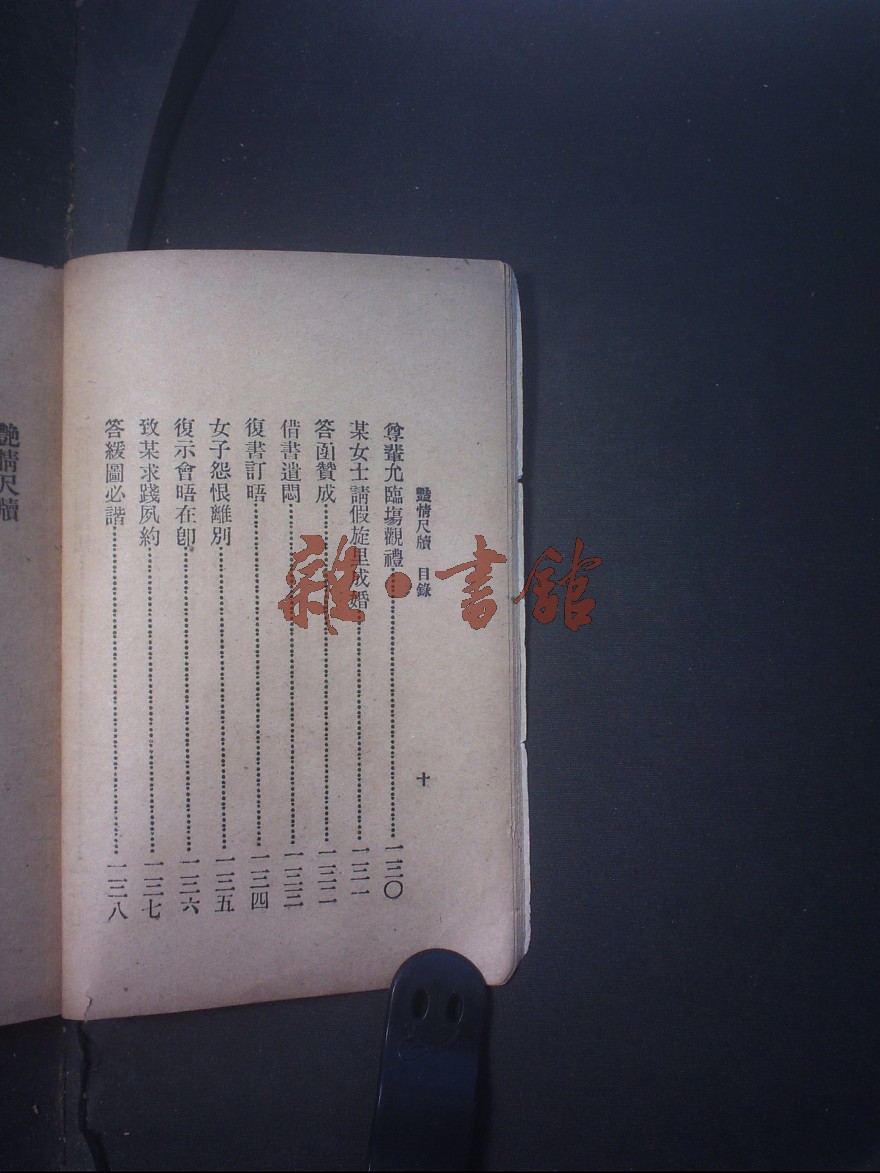 艷情尺牘 目錄 十
尊輩允臨塲觀禮 一三〇
某女士請假旋里成婚 一三一
答函贊成 一三二
借書遣悶 一三三
復書訂晤 一三四
女子怨恨離別 一三五
復示會晤在卽 一三六
致某求踐夙約 一三七
答緩圖必諧 一三八
艷情尺牘
雜·書館